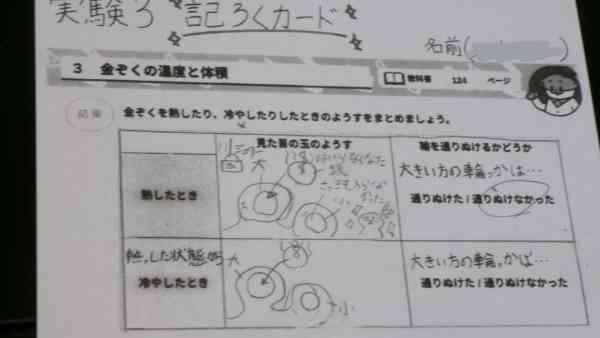 実験3 記ろくカード
名前(
3 金ぞくの温度と体積
教科書 124 ページ
結果
金ぞくを熱したり、冷やしたりしたときのようすをまとめましょう。
見た目の玉のようす
輪を通りぬけるかどうか
熱したとき
大
大きい方の車輪っかは…
通りぬけた / 通りぬけなかった
熱した状態から
冷やしたとき
大
小
大きい方の車輪っかは…
通りぬけた / 通りぬけなかった